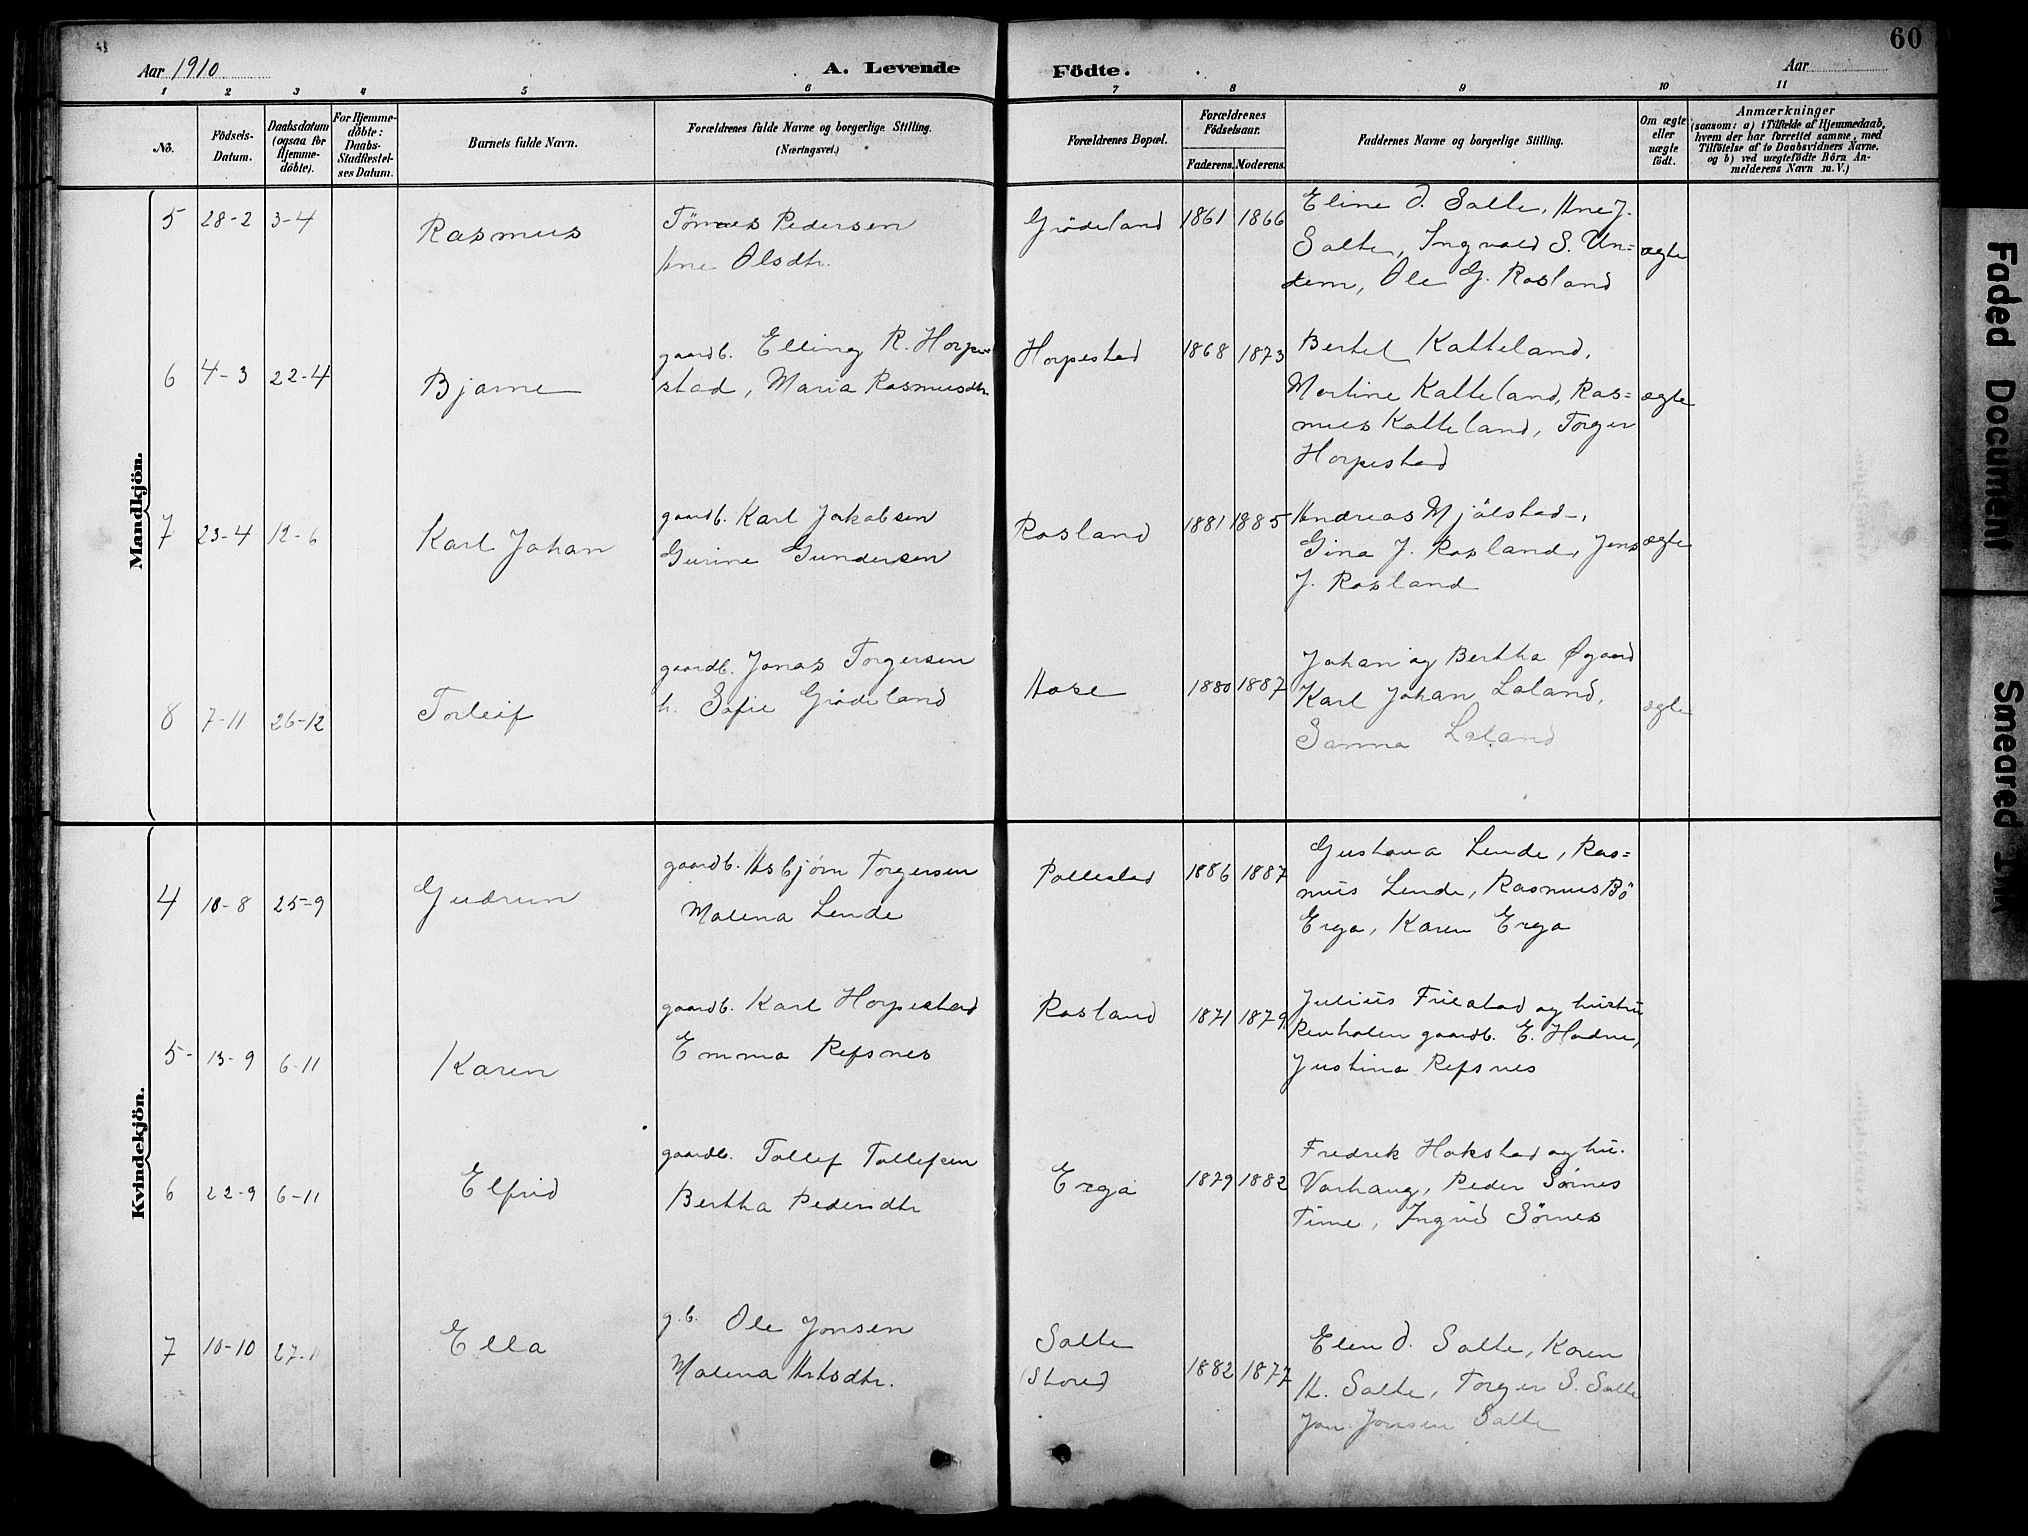 60
Aar 1910
A. Levende
Födte.
Aar
1 2 3 4 5 6 7 8 9 10 11
Nö.
Födsels-
Datum.
Daabsdatum
(ogsaa för
Hjemme-
döbte).
For Hjemme-
döbte:
Daabs-
Stadfæstel-
ses Datum.
Barnets fulde Navn.
Forældrenes fulde Navne og borgerlige Stilling.
(Næringsvei.)
Forældrenes Bopæl.
Forældrenes
Födselsaar.
Faderens. Moderens.
Faddernes Navne og borgerlige Stilling.
Om ægte
eller
uægte
födt.
Anmærkninger
(saasom: a) i Tilfælde af Hjemmedaab,
hvem der har forrettet samme, med
Tilföielse af to Daabsvidners Navne.
og b) ved uægtefödte Börn An-
melderens Navn m. V.)
Mandkjön.
5 28-2 3-4
Rasmus
Tønnes Pedersen
Ane Olsdtr.
Grödeland
1861 1866
Eline O. Salte, Ane J.
Salte, Ingvald S. Un=
dem, Ole G. Rosland
ægte
6 4-3 22-4
Bjarne
gaardb. Elling R. Horpe
stad, Maria Rasmusdtr
Horpestad
1868 1873
Bertel Katteland,
Martine Katteland, Ras=
mus Katteland, Torger
Horpestad
ægte
7 23-4 12-6
Karl Johan
gaardb. Karl Jakobsen
Gurine Gundersen
Rosland
1881 1885
Andreas Mjölstad,
Gina J. Rosland, Jens
J. Rosland
ægte
8 7-11 26-12
Torleif
gaardb. Jonas Torgersen
h. Sofie Grödeland
Aase
1880 1887
Johan og Bertha Øgaard
Karl Johan Laland,
Sanna Laland
ægte
Kvindekjön.
4 10-8 25-9
Gudrun
gaardb. Asbjörn Torgersen
Malena Lende
Pollestad
1886 1887
Gustava Lende, Ras=
mus Lende, Rasmus Bö
Erga, Karen Erga
5 13-9 6-11
Karen
gaardb. Karl Horpestad
Emma Refsnes
Rosland
1871 1879
Julius Fuestad og hustru
gaardb. E. Hadne,
Justina Refsnes
6 22-9 6-11
Elfrid
gaardb. Tollef Tollefsen
Bertha Pedersdtr
Erga
1879 1882
Fredrik Hakstad og hu.
Varhaug, Peder Sörnes
Time, Ingrid Sörnes
7 10-10 27-1
Ella
g.b. Ole Jonsen
Malena
Salte
(Stored)
1882 1877
Elen O. Salte, Karen
A. Salte, Torger S. Salte
Jon Jonsen Salte
Faded Document
Smeared Ink